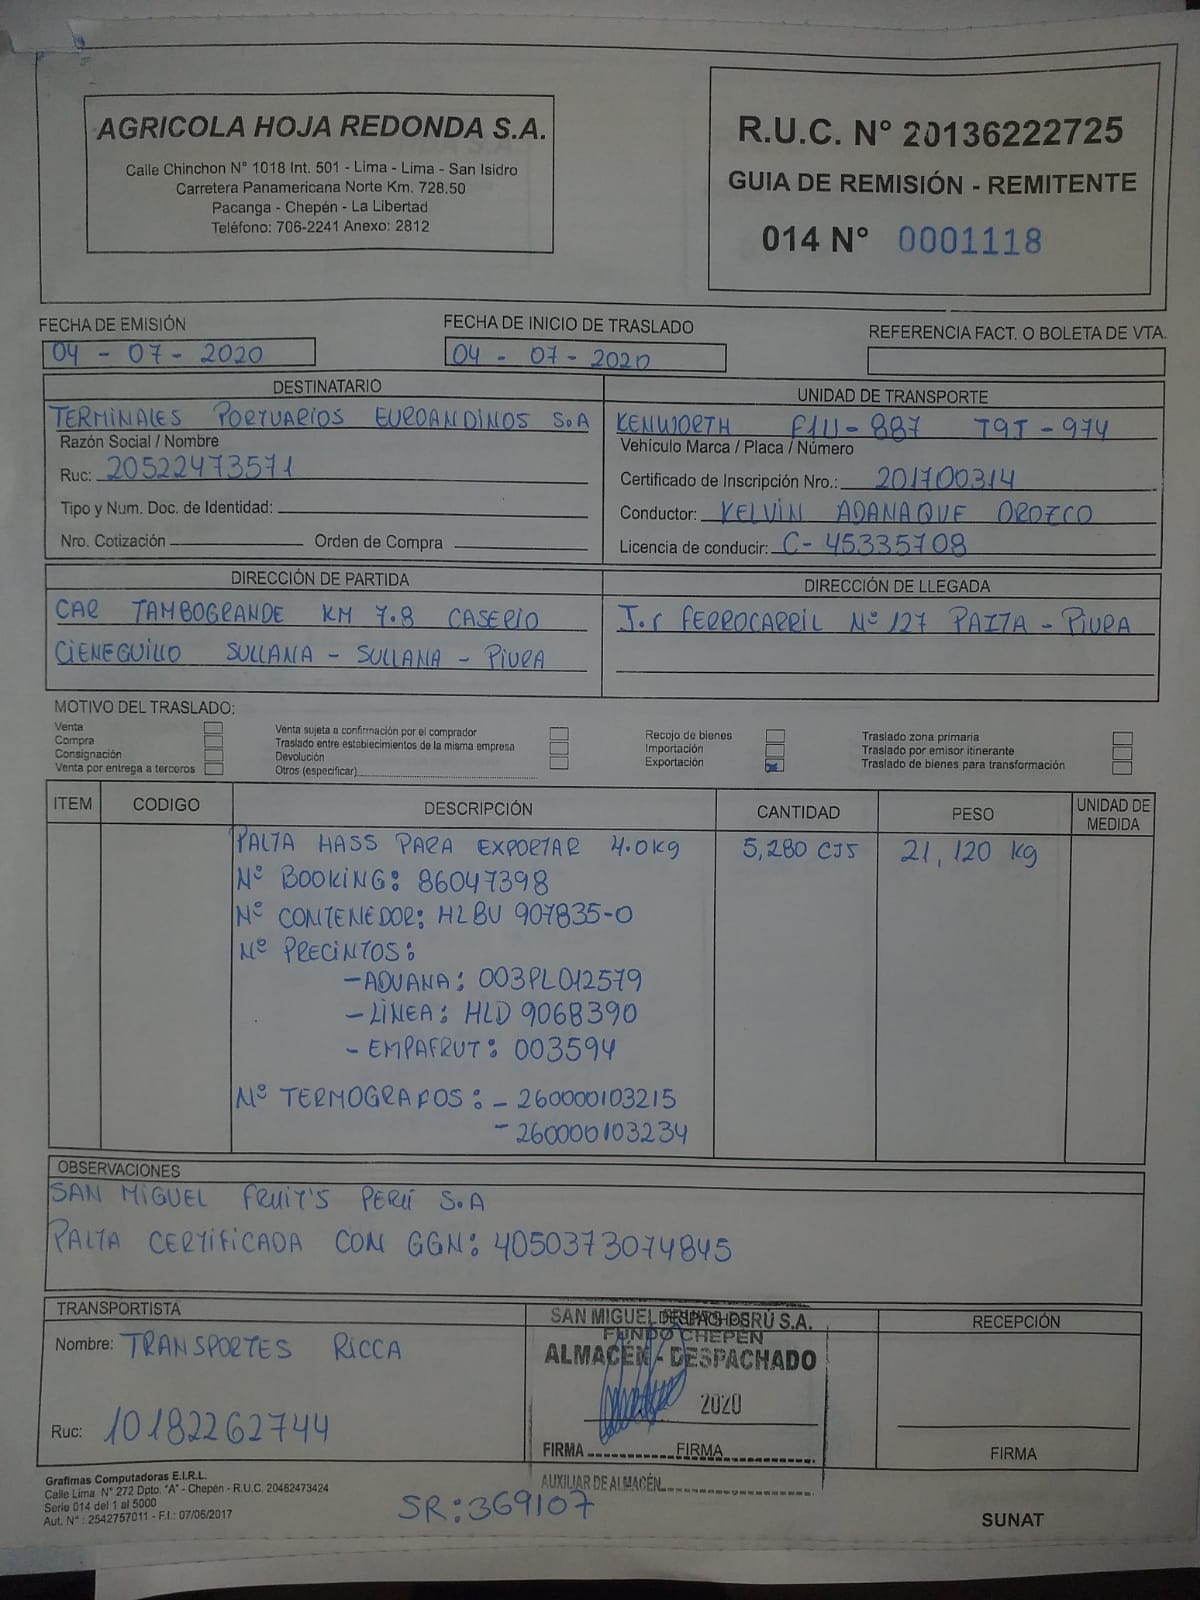 AGRICOLA HOJA REDONDA S.A.
Calle Chinchon N° 1018 Int. 501 - Lima - Lima - San Isidro
Carretera Panamericana Norte Km. 728.50
Pacanga - Chepén - La Libertad
Teléfono: 706-2241 Anexo: 2812
R.U.C. N° 20136222725
GUIA DE REMISIÓN - REMITENTE
014 N° 0001118
FECHA DE EMISIÓN
04 - 07 - 2020
FECHA DE INICIO DE TRASLADO
04 - 07 - 2020
REFERENCIA FACT. O BOLETA DE VTA.
DESTINATARIO
TERMINALES PORTUARIOS EUROANDINOS S.A
Razón Social / Nombre
Ruc: 20522473571
Tipo y Num. Doc. de Identidad:
Nro. Cotización Orden de Compra
UNIDAD DE TRANSPORTE
KENWORTH F1U-887 T9T-974
Vehículo Marca / Placa / Número
Certificado de Inscripción Nro.: 201700314
Conductor: KELVIN ADANAQUE OROZCO
Licencia de conducir: C-45335708
DIRECCIÓN DE PARTIDA
CAR TAMBOGRANDE KM 7.8 CASERIO
CIENEGUILLO SULLANA - SULLANA - PIURA
DIRECCIÓN DE LLEGADA
J.r FERROCARRIL N° 127 PAITA - PIURA
MOTIVO DEL TRASLADO:
Venta
Compra
Consignación
Venta por entrega a terceros
Venta sujeta a confirmación por el comprador
Traslado entre establecimientos de la misma empresa
Devolución
Otros (especificar)
Recojo de bienes
Importación
Exportación
Traslado zona primaria
Traslado por emisor itinerante
Traslado de bienes para transformación
ITEM CODIGO DESCRIPCIÓN CANTIDAD PESO UNIDAD DE MEDIDA
PALTA HASS PARA EXPORTAR 4.0Kg 5,280 CJS 21,120 Kg
N° BOOKING: 86047398
N° CONTENEDOR: HLBU 907835-0
N° PRECINTOS:
-ADUANA: 003PL012579
-LÍNEA: HLD 9068390
-EMPAFRUT: 003594
N° TERMOGRAFOS: - 260000103215
- 260000103234
OBSERVACIONES
SAN MIGUEL FRUIT'S PERÚ S.A
PALTA CERTIFICADA CON GGN: 4050373074845
TRANSPORTISTA
Nombre: TRANSPORTES RICCA
Ruc: 10182262744
SAN MIGUEL FRUITS PERÚ S.A.
DESPACHO
FUNDO CHEPÉN
ALMACÉN - DESPACHADO
2020
FIRMA FIRMA
AUXILIAR DE ALMACÉN
RECEPCIÓN
FIRMA
Grafimas Computadoras E.I.R.L.
Calle Lima N° 272 Dpto. "A" - Chepén - R.U.C. 20482473424
Serie 014 del 1 al 5000
Aut. N° : 2542757011 - F.I.: 07/06/2017
SR:369107
SUNAT